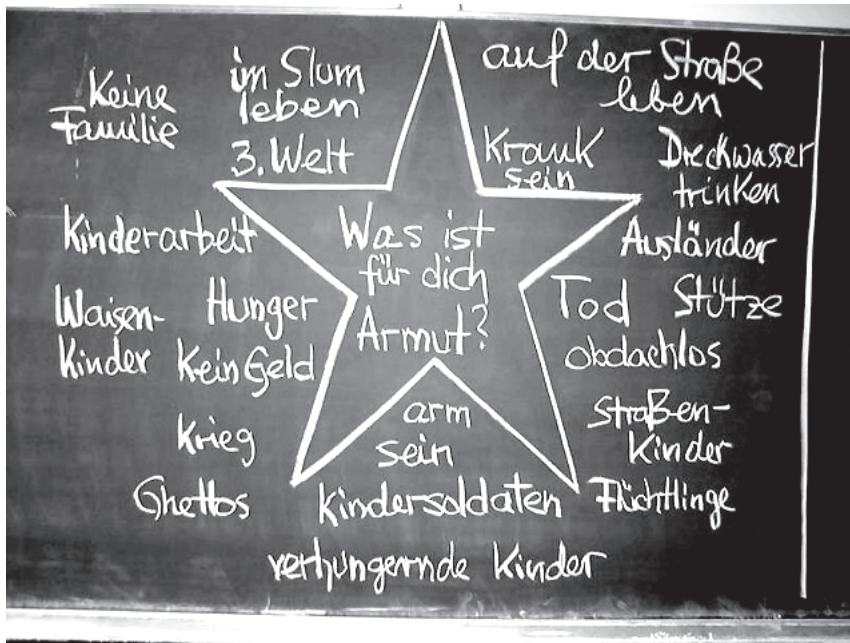 Keine
Familie
im Slum
leben
3. Welt
auf der Straße
leben
Krank
sein
Dreckwasser
trinken
Kinderarbeit
Ausländer
Waisen-
kinder
Hunger
Kein Geld
Was ist
für dich
Armut?
Tod
Stütze
obdachlos
Krieg
arm
sein
Straßen-
Kinder
Ghettos
Kindersoldaten
Flüchtlinge
verhungernde Kinder